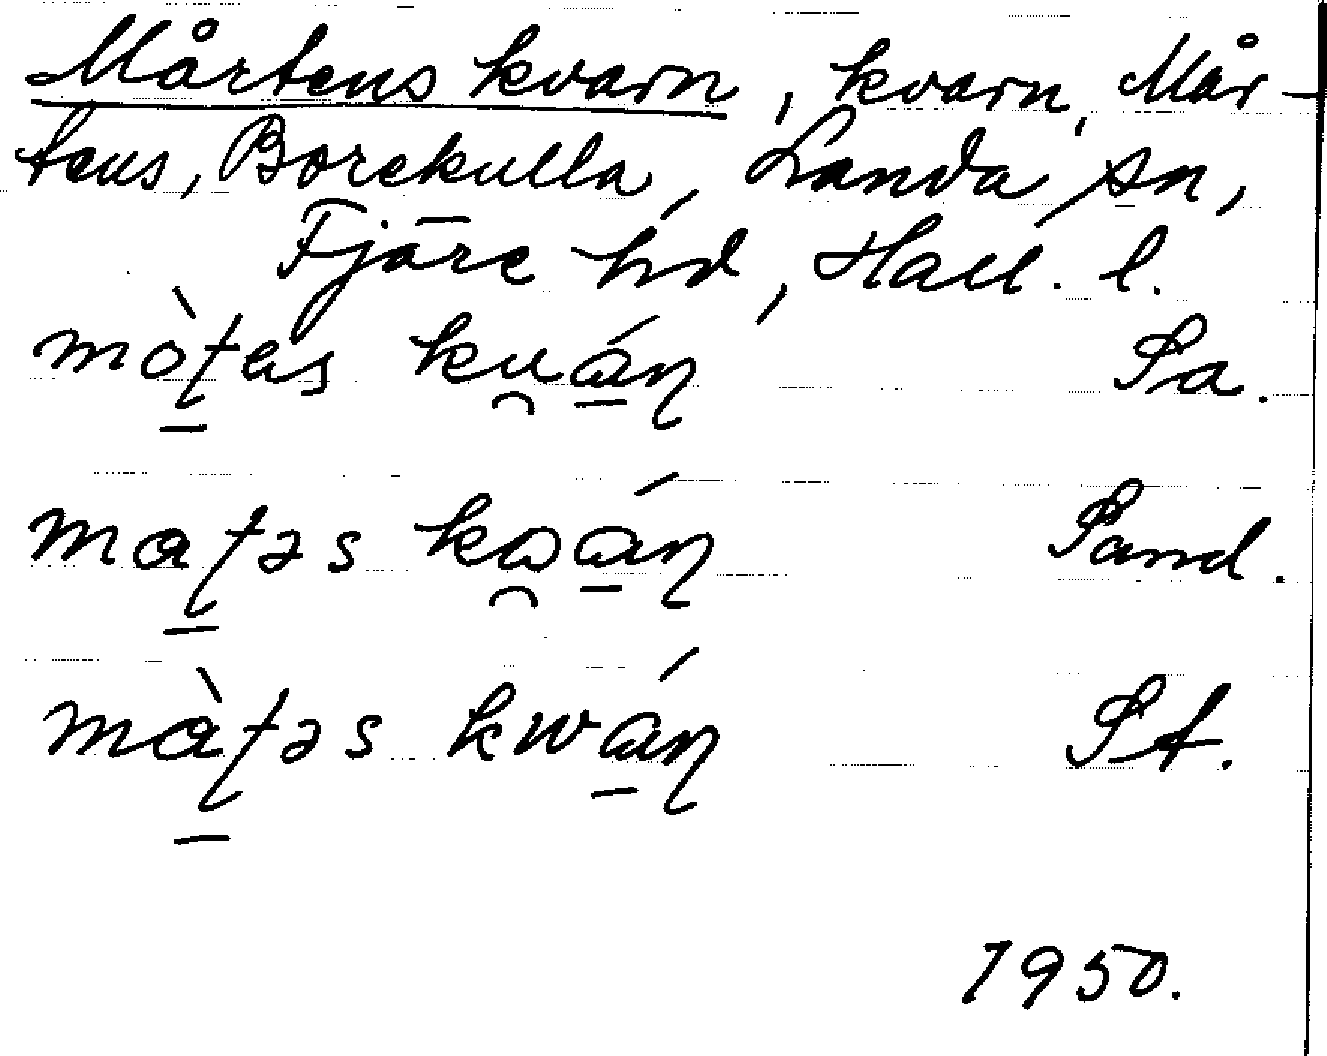 Mårtens kvarn, kvarn, Mår-
tens, Borekulla, Landa sn,
Fjäre hd, Hall. l.
mòʈas ku̯áɳ Sa.
maʈəs kɷ̯áɳ Sand.
màʈəs kwáɳ St.
1950.